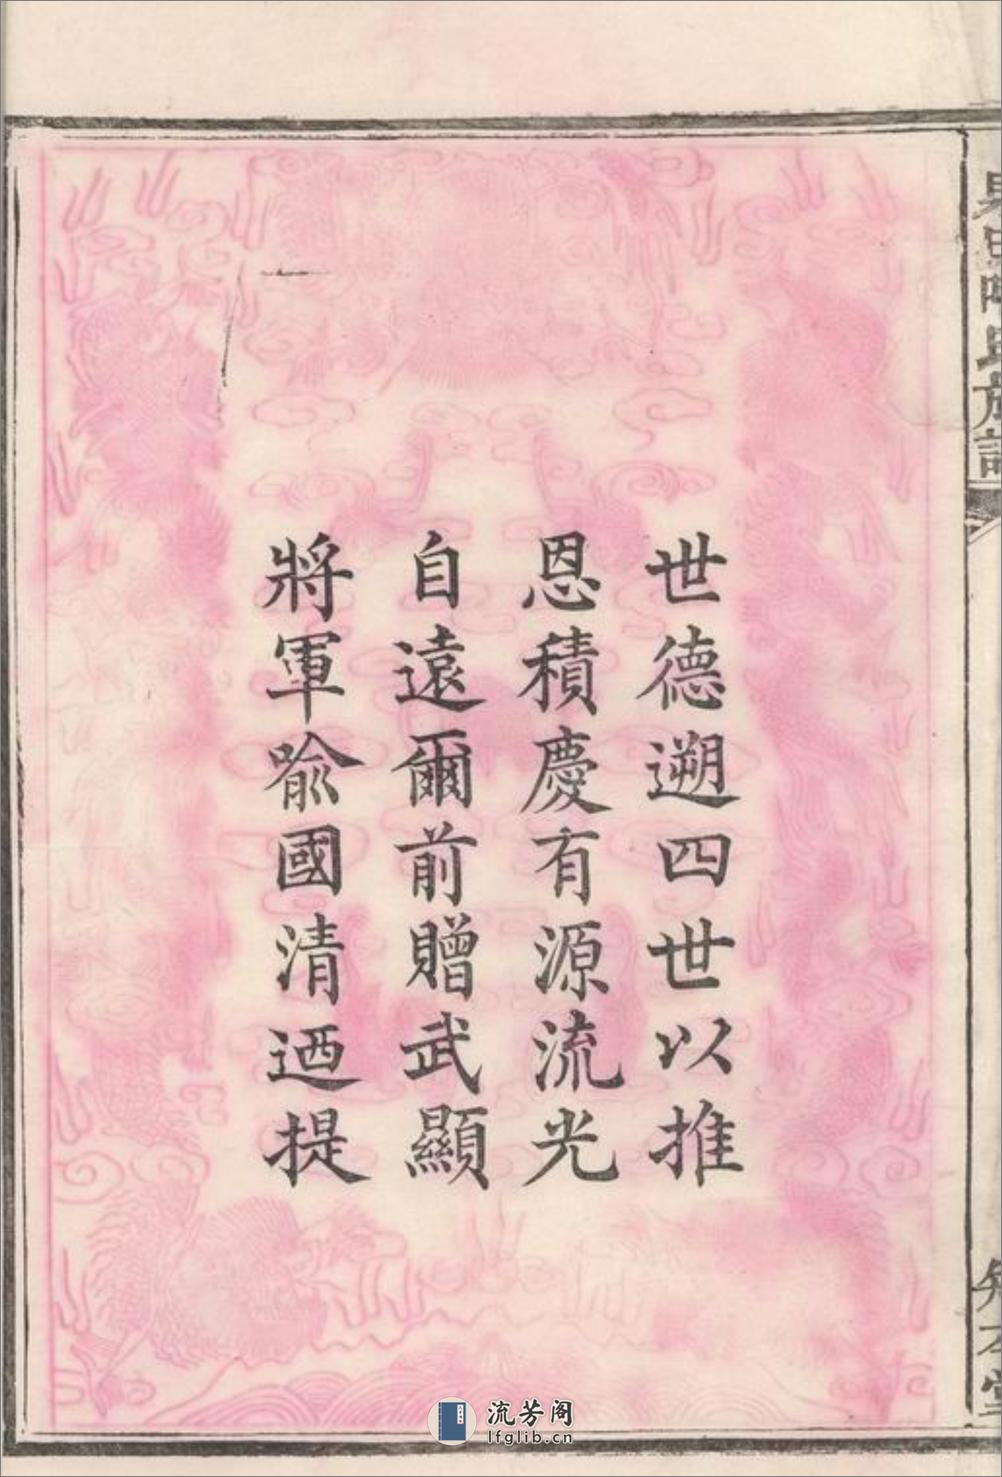 世德遡四世以推
恩積慶有源流光
自遠爾前贈武顯
將軍喩國清迺提
族譜
流芳阁
lfglib.cn